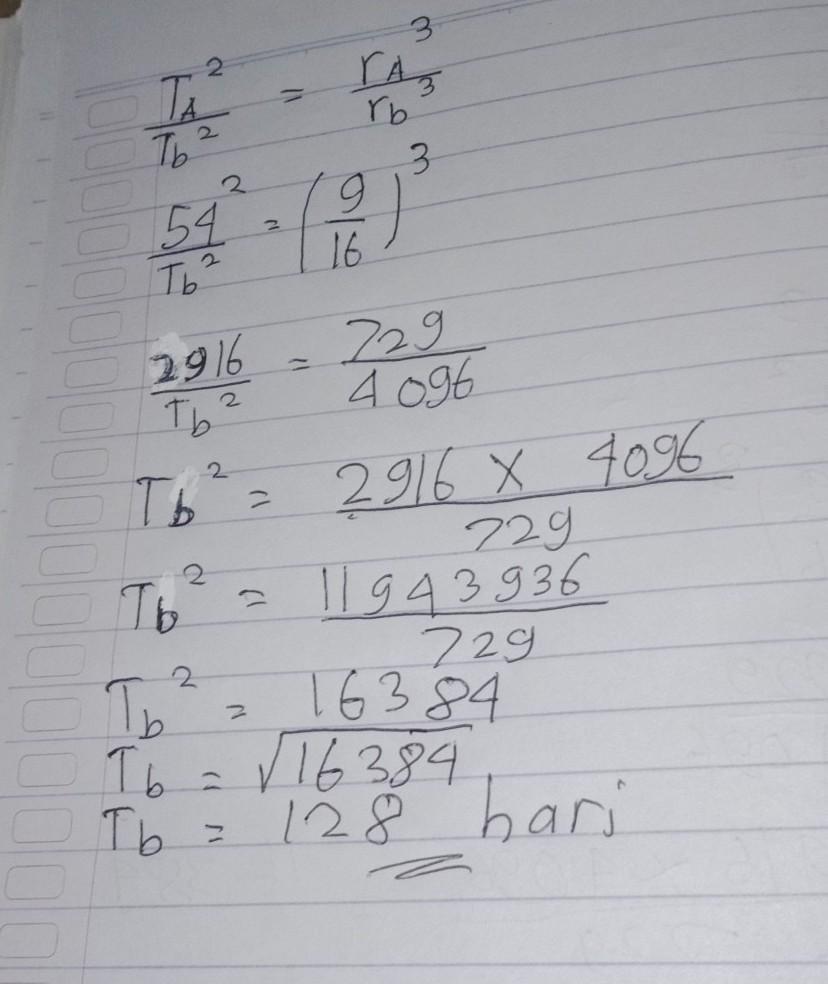 T_A² / T_b² = r_A³ / r_b³
54² / T_b² = (9/16)³
2916 / T_b² = 729 / 4096
T_b² = 2916 X 4096 / 729
T_b² = 11943936 / 729
T_b² = 16384
T_b = √16384
T_b = 128 hari